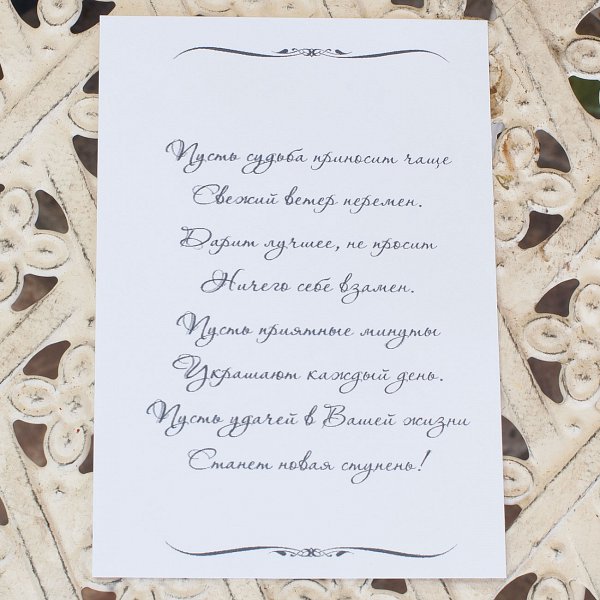 Пусть судьба приносит чаще
Свежий ветер перемен.
Дарит лучшее, не просит
Ничего себе взамен.
Пусть приятные минуты
Украшают каждый день.
Пусть удачей в Вашей жизни
Станет новая ступень!